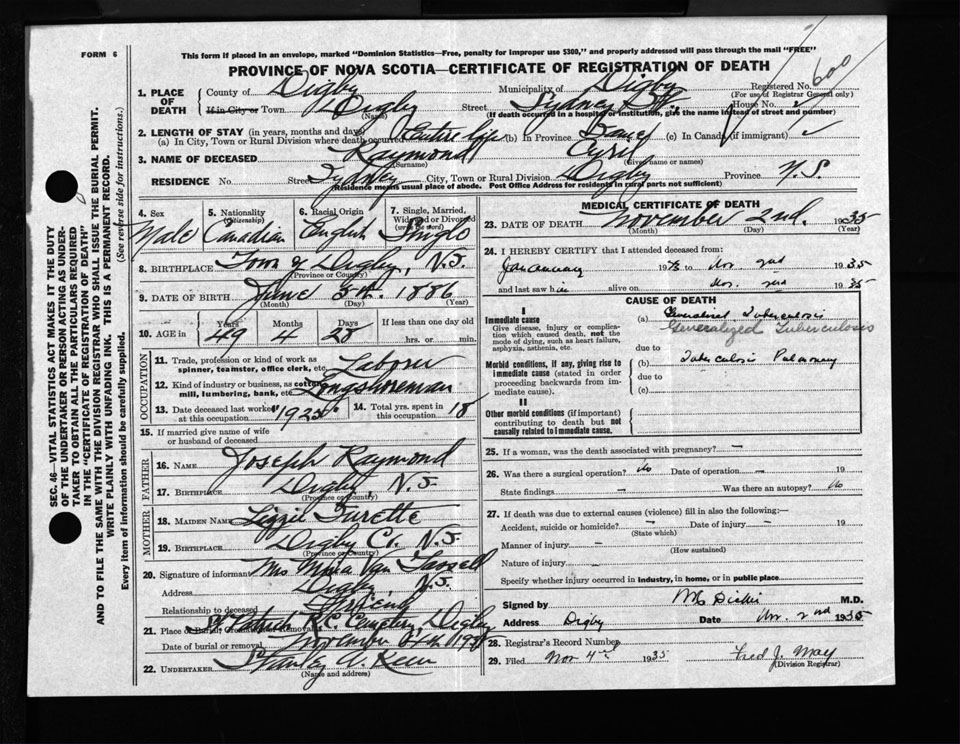 FORM 6
This form if placed in an envelope, marked "Dominion Statistics—Free, penalty for improper use $300," and properly addressed will pass through the mail "FREE"
PROVINCE OF NOVA SCOTIA—CERTIFICATE OF REGISTRATION OF DEATH
600
1. PLACE OF DEATH County of Digby Municipality of Digby Registered No.
(For use of Registrar General only)
If in City or Town Digby (Name) Street Sydney St. House No.
(If death occurred in a hospital or institution, give the name instead of street and number)
2. LENGTH OF STAY (in years, months and days)
(a) In City, Town or Rural Division where death occurred Entire life (b) In Province Same (c) In Canada (if immigrant)
3. NAME OF DECEASED Raymond (Surname) Cyril (Given name or names)
RESIDENCE No. Street Sydney City, Town or Rural Division Digby Province N.S.
Residence means usual place of abode. Post Office Address for residents in rural parts not sufficient)
4. Sex Male
5. Nationality (Citizenship) Canadian
6. Racial Origin English
7. Single, Married, Widowed or Divorced (write the word) Single
8. BIRTHPLACE Town of Digby, N.S.
(Province or County)
9. DATE OF BIRTH June 1886
(Month) (Day) (Year)
10. AGE in Years Months Days If less than one day old
49 4 28 hrs. or min.
OCCUPATION
11. Trade, profession or kind of work as spinner, teamster, office clerk, etc. Laborer
12. Kind of industry or business, as cotton mill, lumbering, bank, etc. Longshoreman
13. Date deceased last worked at this occupation 14. Total yrs. spent in this occupation 18
15. If married give name of wife or husband of deceased
FATHER
16. NAME Joseph Raymond
17. BIRTHPLACE Digby N.S.
(Province or Country)
MOTHER
18. MAIDEN NAME Lizzie Turette
19. BIRTHPLACE Digby Co. N.S.
(Province or Country)
20. Signature of informant Mrs Van Tassell
Address Digby N.S.
Relationship to deceased Friend
21. Place of Burial, Cremation or Removal St Patrick R.C. Cemetery Digby
Date of burial or removal November
22. UNDERTAKER Stanley
(Name and address)
MEDICAL CERTIFICATE OF DEATH
23. DATE OF DEATH November 2nd. 1935
(Month) (Day) (Year)
24. I HEREBY CERTIFY that I attended deceased from:
Nov. 2nd 1935
and last saw h alive on Nov. 2nd 1935
CAUSE OF DEATH
I
Immediate cause
Give disease, injury or complication which caused death, not the mode of dying, such as heart failure, asphyxia, asthenia, etc.
(a) Generalized Tuberculosis
Generalized Tuberculosis
due to
Morbid conditions, if any, giving rise to immediate cause (stated in order proceeding backwards from immediate cause).
(b) Tuberculosis Pulmonary
due to
(c)
II
Other morbid conditions (if important) contributing to death but not causally related to immediate cause.
25. If a woman, was the death associated with pregnancy? —
26. Was there a surgical operation? No Date of operation — 19
State findings — Was there an autopsy? No
27. If death was due to external causes (violence) fill in also the following:—
Accident, suicide or homicide? — Date of injury — 19
(State which)
Manner of injury —
(How sustained)
Nature of injury —
Specify whether injury occurred in industry, in home, or in public place
Signed by M.D.
Address Digby Date Nov. 2nd 1935
28. Registrar's Record Number
29. Filed Nov 4th 1935 Fred J. May
(Division Registrar)
SEC. 46—VITAL STATISTICS ACT MAKES IT THE DUTY
OF THE UNDERTAKER OR PERSON ACTING AS UNDER-
TAKER TO OBTAIN ALL THE PARTICULARS REQUIRED
IN THE "CERTIFICATE OF REGISTRATION OF DEATH"
AND TO FILE THE SAME WITH THE DIVISION REGISTRAR WHO SHALL ISSUE THE BURIAL PERMIT.
WRITE PLAINLY WITH UNFADING INK. THIS IS A PERMANENT RECORD.
Every item of information should be carefully supplied. (See reverse side for instructions.)